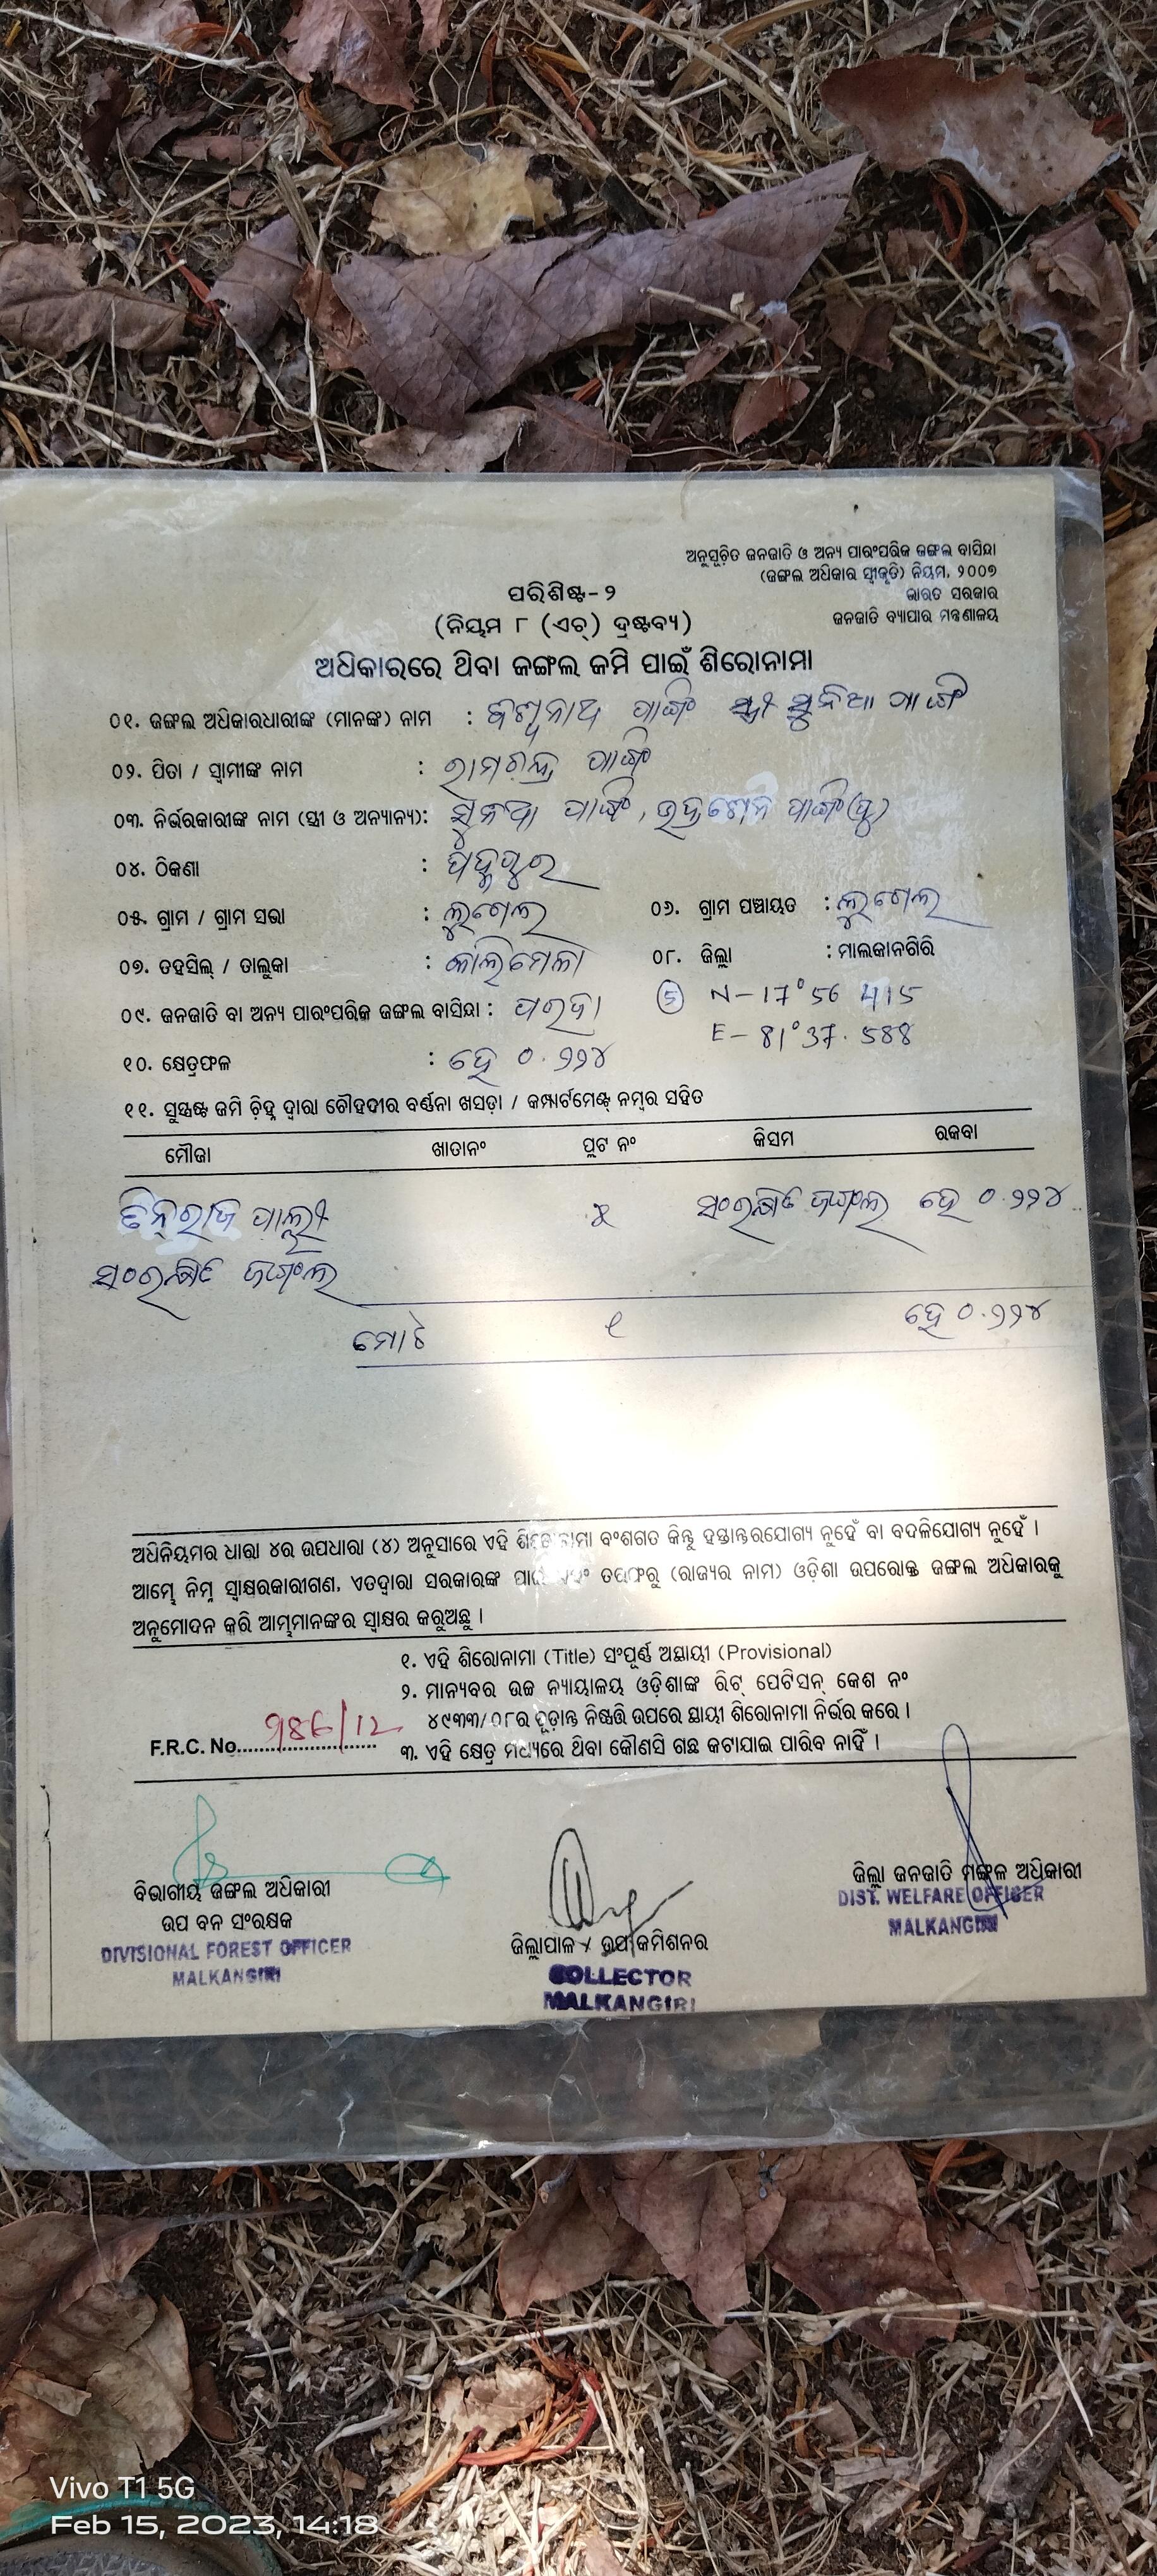 ଅନୁସୂଚିତ ଜନଜାତି ଓ ଅନ୍ୟ ପାରଂପରିକ ଜଙ୍ଗଲ ବାସିନ୍ଦା
(ଜଙ୍ଗଲ ଅଧିକାର ସ୍ୱୀକୃତି) ନିୟମ, ୨୦୦୭
ଭାରତ ସରକାର
ଜନଜାତି ବ୍ୟାପାର ମନ୍ତ୍ରଣାଳୟ
ପରିଶିଷ୍ଟ-୨
(ନିୟମ ୮ (ଏଚ୍) ଦ୍ରଷ୍ଟବ୍ୟ)
ଅଧିକାରରେ ଥିବା ଜଙ୍ଗଲ ଜମି ପାଇଁ ଶିରୋନାମା
୦୧. ଜଙ୍ଗଲ ଅଧିକାରଧାରୀଙ୍କ (ମାନଙ୍କ) ନାମ : ପାଙ୍ଗି ପାଙ୍ଗି
୦୨. ପିତା / ସ୍ୱାମୀଙ୍କ ନାମ : ରାମଚନ୍ଦ୍ର ପାଙ୍ଗି
୦୩. ନିର୍ଭରକାରୀଙ୍କ ନାମ (ସ୍ତ୍ରୀ ଓ ଅନ୍ୟାନ୍ୟ): ପାଙ୍ଗି, ପାଙ୍ଗି(ପୁ)
୦୪. ଠିକଣା :
୦୫. ଗ୍ରାମ / ଗ୍ରାମ ସଭା : ଲୁଗେଲ ୦୬. ଗ୍ରାମ ପଞ୍ଚାୟତ : ଲୁଗେଲ
୦୭. ତହସିଲ୍ / ତାଲୁକା : କାଲିମେଳା ୦୮. ଜିଲ୍ଲା : ମାଲକାନଗିରି
୦୯. ଜନଜାତି ବା ଅନ୍ୟ ପାରଂପରିକ ଜଙ୍ଗଲ ବାସିନ୍ଦା : ପରଜା ⑤ N-17°56 415
E-81°37.588
୧୦. କ୍ଷେତ୍ରଫଳ : ହେ ୦.୨୨୪
୧୧. ସୁସ୍ପଷ୍ଟ ଜମି ଚିହ୍ନ ଦ୍ୱାରା ଚୌହଦୀର ବର୍ଣ୍ଣନା ଖସଡ଼ା / କମ୍ପାର୍ଟମେଣ୍ଟ୍ ନମ୍ବର ସହିତ
ମୌଜା ଖାତାନଂ ପ୍ଲଟ ନଂ କିସମ ରକବା
ସଂରକ୍ଷିତ ଜଙ୍ଗଲ ହେ ୦.୨୨୪
ସଂରକ୍ଷିତ ଜଙ୍ଗଲ
ମୋଟ ୧ ହେ ୦.୨୨୪
ଅଧିନିୟମର ଧାରା ୪ର ଉପଧାରା (୪) ଅନୁସାରେ ଏହି ଶିରୋନାମା ବଂଶଗତ କିନ୍ତୁ ହସ୍ତାନ୍ତରଯୋଗ୍ୟ ନୁହେଁ ବା ବଦଳିଯୋଗ୍ୟ ନୁହେଁ ।
ଆମ୍ଭେ ନିମ୍ନ ସ୍ୱାକ୍ଷରକାରୀଗଣ, ଏତଦ୍ୱାରା ସରକାରଙ୍କ ପାଇଁ ଏବଂ ତରଫରୁ (ରାଜ୍ୟର ନାମ) ଓଡ଼ିଶା ଉପରୋକ୍ତ ଜଙ୍ଗଲ ଅଧିକାରକୁ
ଅନୁମୋଦନ କରି ଆମ୍ଭମାନଙ୍କର ସ୍ୱାକ୍ଷର କରୁଅଛୁ ।
୧. ଏହି ଶିରୋନାମା (Title) ସଂପୂର୍ଣ୍ଣ ଅସ୍ଥାୟୀ (Provisional)
୨. ମାନ୍ୟବର ଉଚ୍ଚ ନ୍ୟାୟାଳୟ ଓଡ଼ିଶାଙ୍କ ରିଟ୍ ପେଟିସନ୍ କେଶ ନଂ
୪୯୩୩/୦୮ର ଚୂଡ଼ାନ୍ତ ନିଷ୍ପତ୍ତି ଉପରେ ସ୍ଥାୟୀ ଶିରୋନାମା ନିର୍ଭର କରେ ।
F.R.C. No.........................
୩. ଏହି କ୍ଷେତ୍ର ମଧ୍ୟରେ ଥିବା କୌଣସି ଗଛ କଟାଯାଇ ପାରିବ ନାହିଁ ।
ବିଭାଗୀୟ ଜଙ୍ଗଲ ଅଧିକାରୀ
ଉପ ବନ ସଂରକ୍ଷକ
DIVISIONAL FOREST OFFICER
MALKANGIRI
ଜିଲ୍ଲାପାଳ / ଉପକମିଶନର
COLLECTOR
MALKANGIRI
ଜିଲ୍ଲା ଜନଜାତି ମଙ୍ଗଳ ଅଧିକାରୀ
DIST. WELFARE OFFICER
MALKANGIRI
Vivo T1 5G
Feb 15, 2023, 14:18